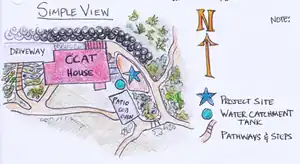 SIMPLE VIEW
N
NOTE:
DRIVEWAY
CCAT
HOUSE
PATIO
PROJECT SITE
WATER CATCHMENT
TANK
PATHWAYS & STEPS